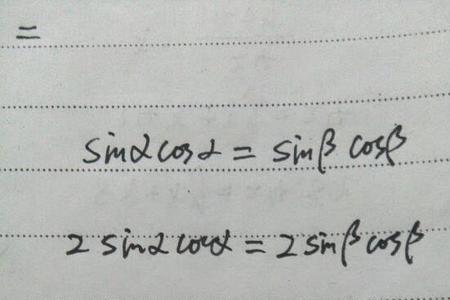 =
sinαcosα = sinβ cosβ
2 sinαcosα = 2 sinβ cosβ